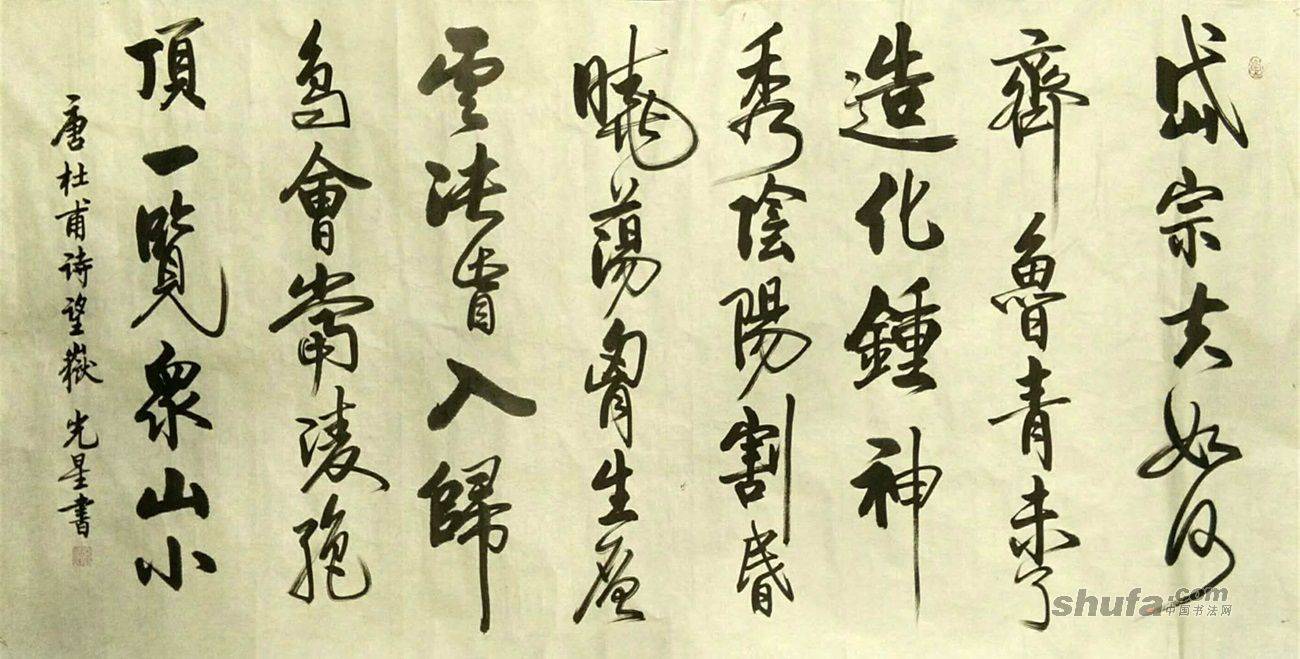 岱宗夫如何
齊魯青未了
造化鍾神
秀陰陽割昏
曉蕩胷生層
雲決眥入歸
鳥會當凌絕
頂一覽衆山小
唐杜甫詩望嶽 光星書
shufa.com
中国书法网